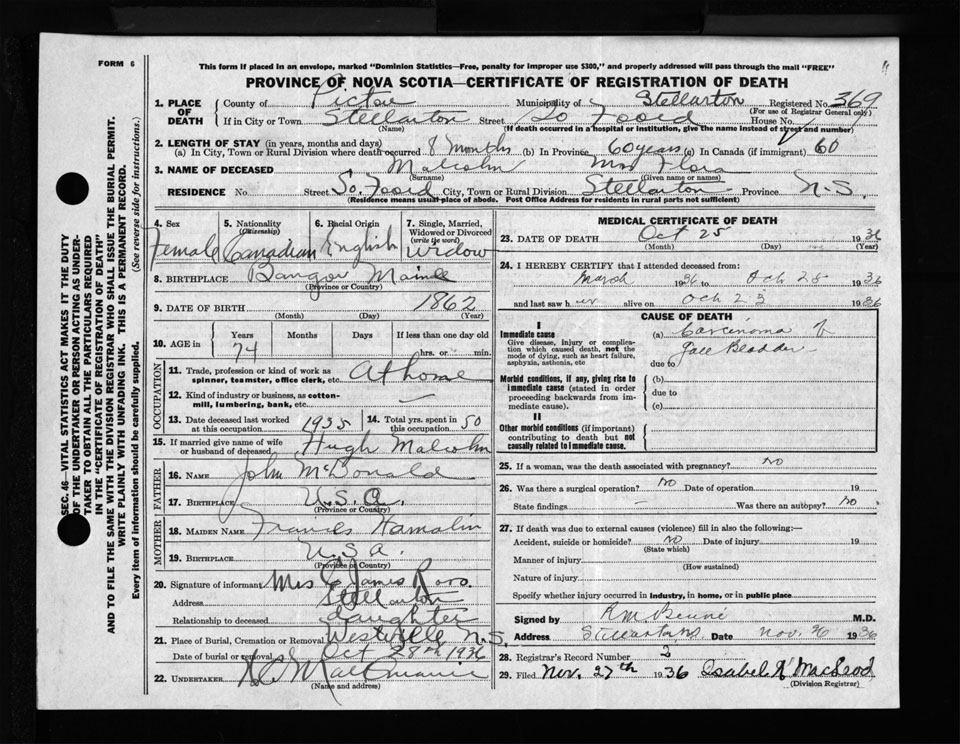 FORM 6
This form if placed in an envelope, marked "Dominion Statistics—Free, penalty for improper use $300," and properly addressed will pass through the mail "FREE"
PROVINCE OF NOVA SCOTIA—CERTIFICATE OF REGISTRATION OF DEATH
1. PLACE OF DEATH County of Pictou Municipality of Stellarton Registered No. 369
(For use of Registrar General only)
If in City or Town Stellarton Street So Foord House No.
(Name) (If death occurred in a hospital or institution, give the name instead of street and number)
2. LENGTH OF STAY (in years, months and days)
(a) In City, Town or Rural Division where death occurred 8 months (b) In Province 60 years (c) In Canada (if immigrant) 60
3. NAME OF DECEASED Malcolm Mrs Flora
(Surname) (Given name or names)
RESIDENCE No. Street So. Foord City, Town or Rural Division Stellarton Province N.S.
(Residence means usual place of abode. Post Office Address for residents in rural parts not sufficient)
4. Sex Female
5. Nationality (Citizenship) Canadian
6. Racial Origin English
7. Single, Married, Widowed or Divorced (write the word) Widow
8. BIRTHPLACE Bangor Maine
(Province or Country)
9. DATE OF BIRTH 1862
(Month) (Day) (Year)
10. AGE in Years Months Days If less than one day old
74 hrs. or min.
OCCUPATION
11. Trade, profession or kind of work as spinner, teamster, office clerk, etc. At home
12. Kind of industry or business, as cotton-mill, lumbering, bank, etc. —
13. Date deceased last worked at this occupation 1935
14. Total yrs. spent in this occupation 50
15. If married give name of wife or husband of deceased Hugh Malcolm
FATHER
16. NAME John McDonald
17. BIRTHPLACE U.S.A.
(Province or Country)
MOTHER
18. MAIDEN NAME Frances Hamalin
19. BIRTHPLACE U.S.A.
(Province or Country)
20. Signature of informant Mrs James
Address Stellarton
Relationship to deceased daughter
21. Place of Burial, Cremation or Removal Westville N.S.
Date of burial or removal Oct 28th 1936
22. UNDERTAKER
(Name and address)
MEDICAL CERTIFICATE OF DEATH
23. DATE OF DEATH Oct 25 1936
(Month) (Day) (Year)
24. I HEREBY CERTIFY that I attended deceased from:
March 1936 to Oct 25 1936
and last saw her alive on Oct 23 1936
CAUSE OF DEATH
I
Immediate cause
Give disease, injury or complication which caused death, not the mode of dying, such as heart failure, asphyxia, asthenia, etc
(a) Carcinoma of
Gall Bladder
due to
Morbid conditions, if any, giving rise to immediate cause (stated in order proceeding backwards from immediate cause).
(b)
due to
(c)
II
Other morbid conditions (if important) contributing to death but not causally related to immediate cause.
25. If a woman, was the death associated with pregnancy? no
26. Was there a surgical operation? no Date of operation 19
State findings — Was there an autopsy? no
27. If death was due to external causes (violence) fill in also the following:—
Accident, suicide or homicide? no Date of injury 19
(State which)
Manner of injury
(How sustained)
Nature of injury
Specify whether injury occurred in industry, in home, or in public place
Signed by M.D.
Address Stellarton N.S. Date Nov. 26 1936
28. Registrar's Record Number 2
29. Filed Nov. 27th 1936 Isabel A MacLeod
(Division Registrar)
SEC. 46—VITAL STATISTICS ACT MAKES IT THE DUTY
OF THE UNDERTAKER OR PERSON ACTING AS UNDER-
TAKER TO OBTAIN ALL THE PARTICULARS REQUIRED
IN THE "CERTIFICATE OF REGISTRATION OF DEATH"
AND TO FILE THE SAME WITH THE DIVISION REGISTRAR WHO SHALL ISSUE THE BURIAL PERMIT.
WRITE PLAINLY WITH UNFADING INK. THIS IS A PERMANENT RECORD.
Every item of information should be carefully supplied. (See reverse side for instructions.)